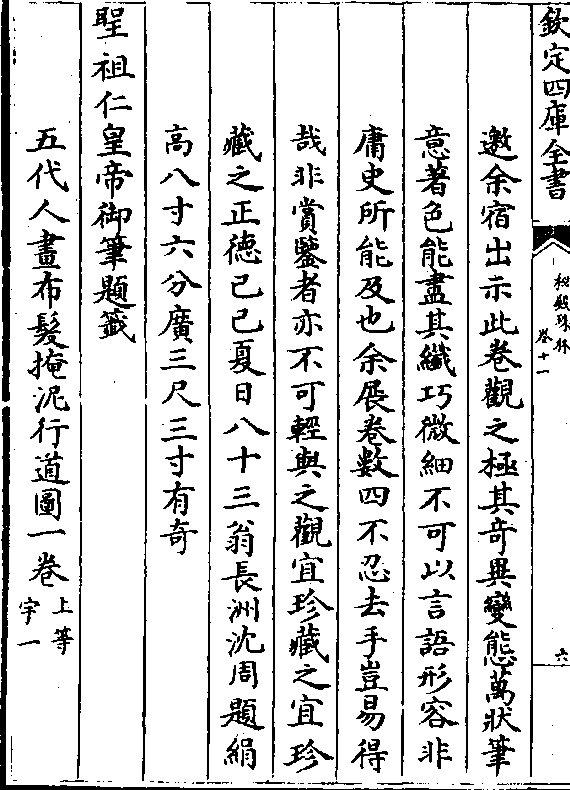 欽定四庫全書
秘殿珠林
卷十一
六
邀余宿出示此卷觀之極其奇異變態萬狀筆
意著色能盡其纖巧微細不可以言語形容非
庸史所能及也余展卷數四不忍去手豈易得
哉非賞鑒者亦不可輕與之觀宜珍藏之宜珍
藏之正德己巳夏日八十三翁長洲沈周題絹
高八寸六分廣三尺三寸有奇
聖祖仁皇帝御筆題籤
五代人畫布髮掩泥行道圖一卷
上等
宇一